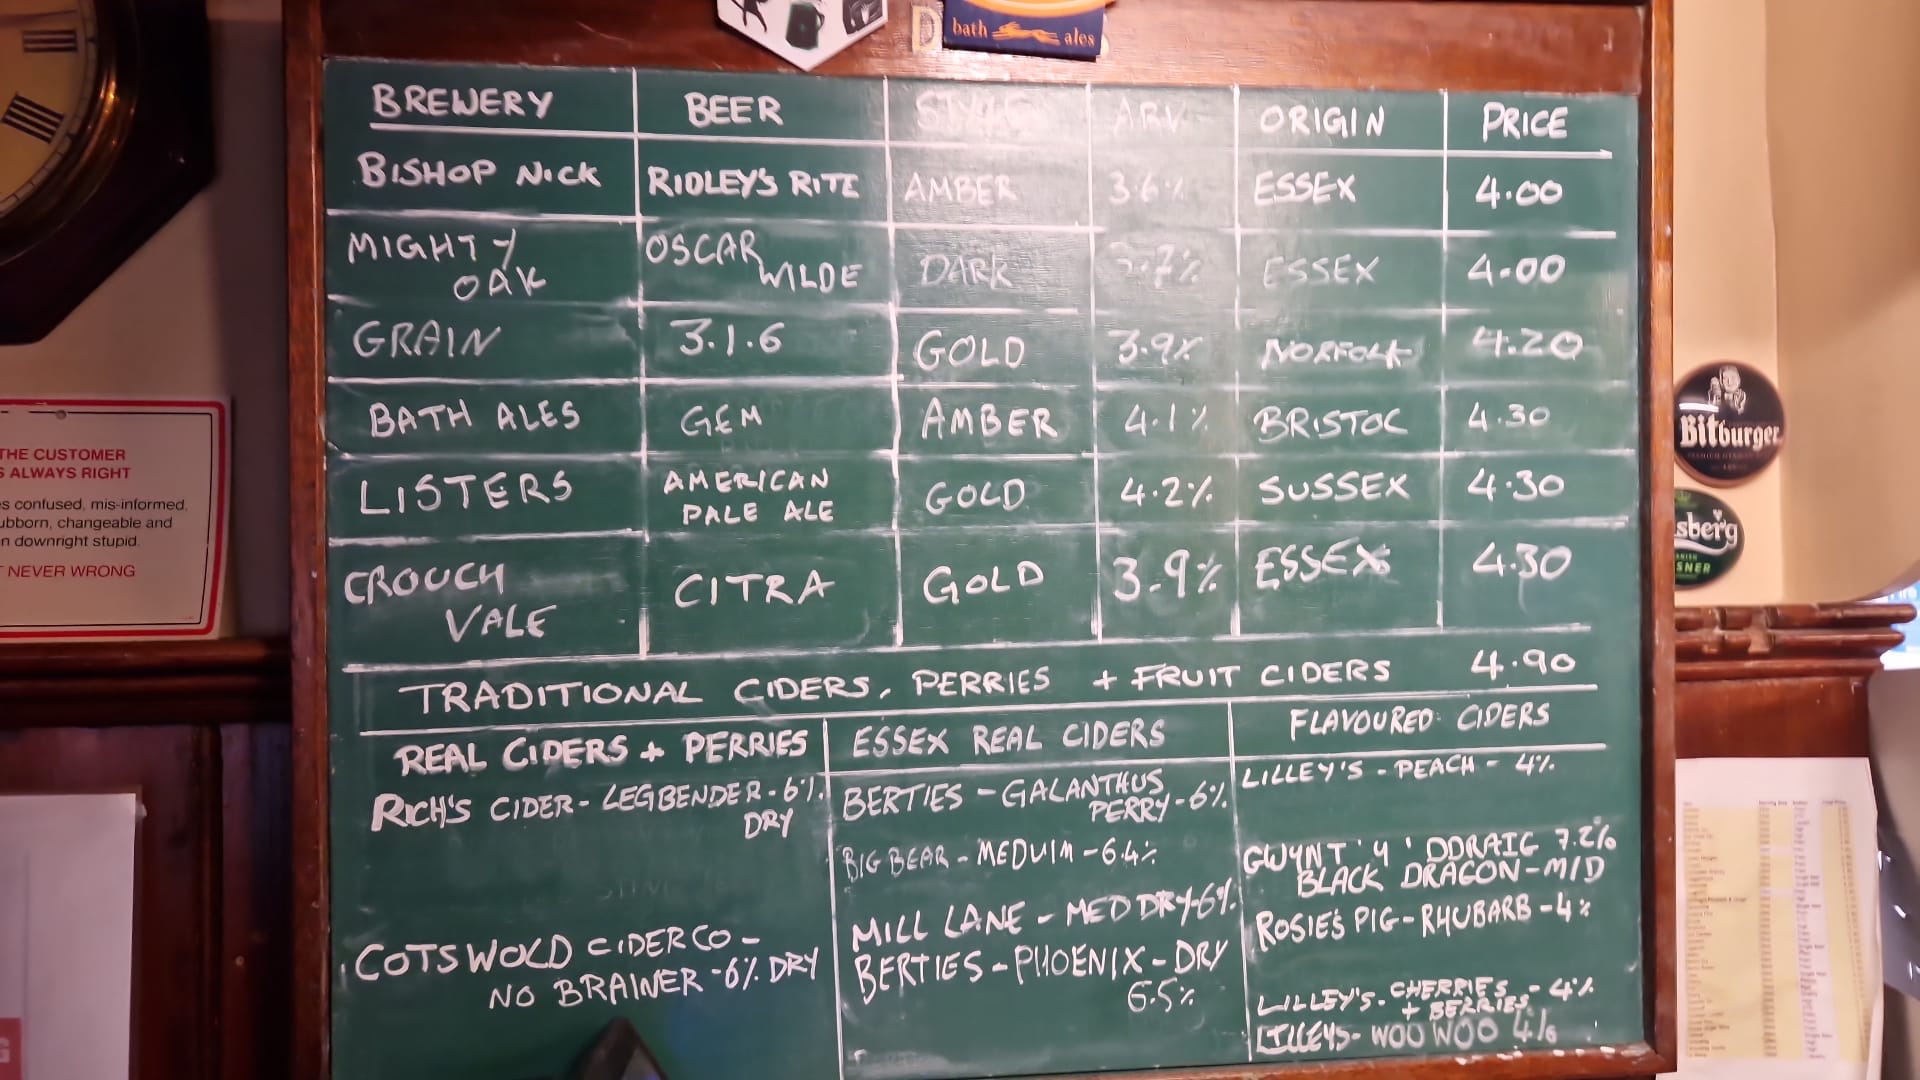 bath ales
BREWERY BEER STYLE ABV ORIGIN PRICE
BISHOP NICK RIDLEY'S RITE AMBER 3.6% ESSEX 4.00
MIGHTY OAK OSCAR WILDE DARK 3.7% ESSEX 4.00
GRAIN 3.1.6 GOLD 3.9% NORFOLK 4.20
BATH ALES GEM AMBER 4.1% BRISTOL 4.30
LISTERS AMERICAN PALE ALE GOLD 4.2% SUSSEX 4.30
CROUCH VALE CITRA GOLD 3.9% ESSEX 4.30
TRADITIONAL CIDERS, PERRIES + FRUIT CIDERS 4.90
REAL CIDERS + PERRIES
RICH'S CIDER - LEGBENDER - 6%.
DRY
COTSWOLD CIDER CO -
NO BRAINER - 6% DRY
ESSEX REAL CIDERS
BERTIES - GALANTHUS
PERRY - 6%
BIG BEAR - MEDUIM - 6.4%
MILL LANE - MED DRY - 6%.
BERTIES - PHOENIX - DRY
6.5%
FLAVOURED CIDERS
LILLEY'S - PEACH - 4%.
GWYNT 'Y' DDRAIG 7.2%
BLACK DRAGON - M/D
ROSIE'S PIG - RHUBARB - 4%
LILLEY'S - CHERRIES - 4%
+ BERRIES
LILLEYS - WOO WOO 4%
THE CUSTOMER
S ALWAYS RIGHT
s confused, mis-informed,
ubborn, changeable and
n downright stupid.
NEVER WRONG
Bitburger
sberg
SNER